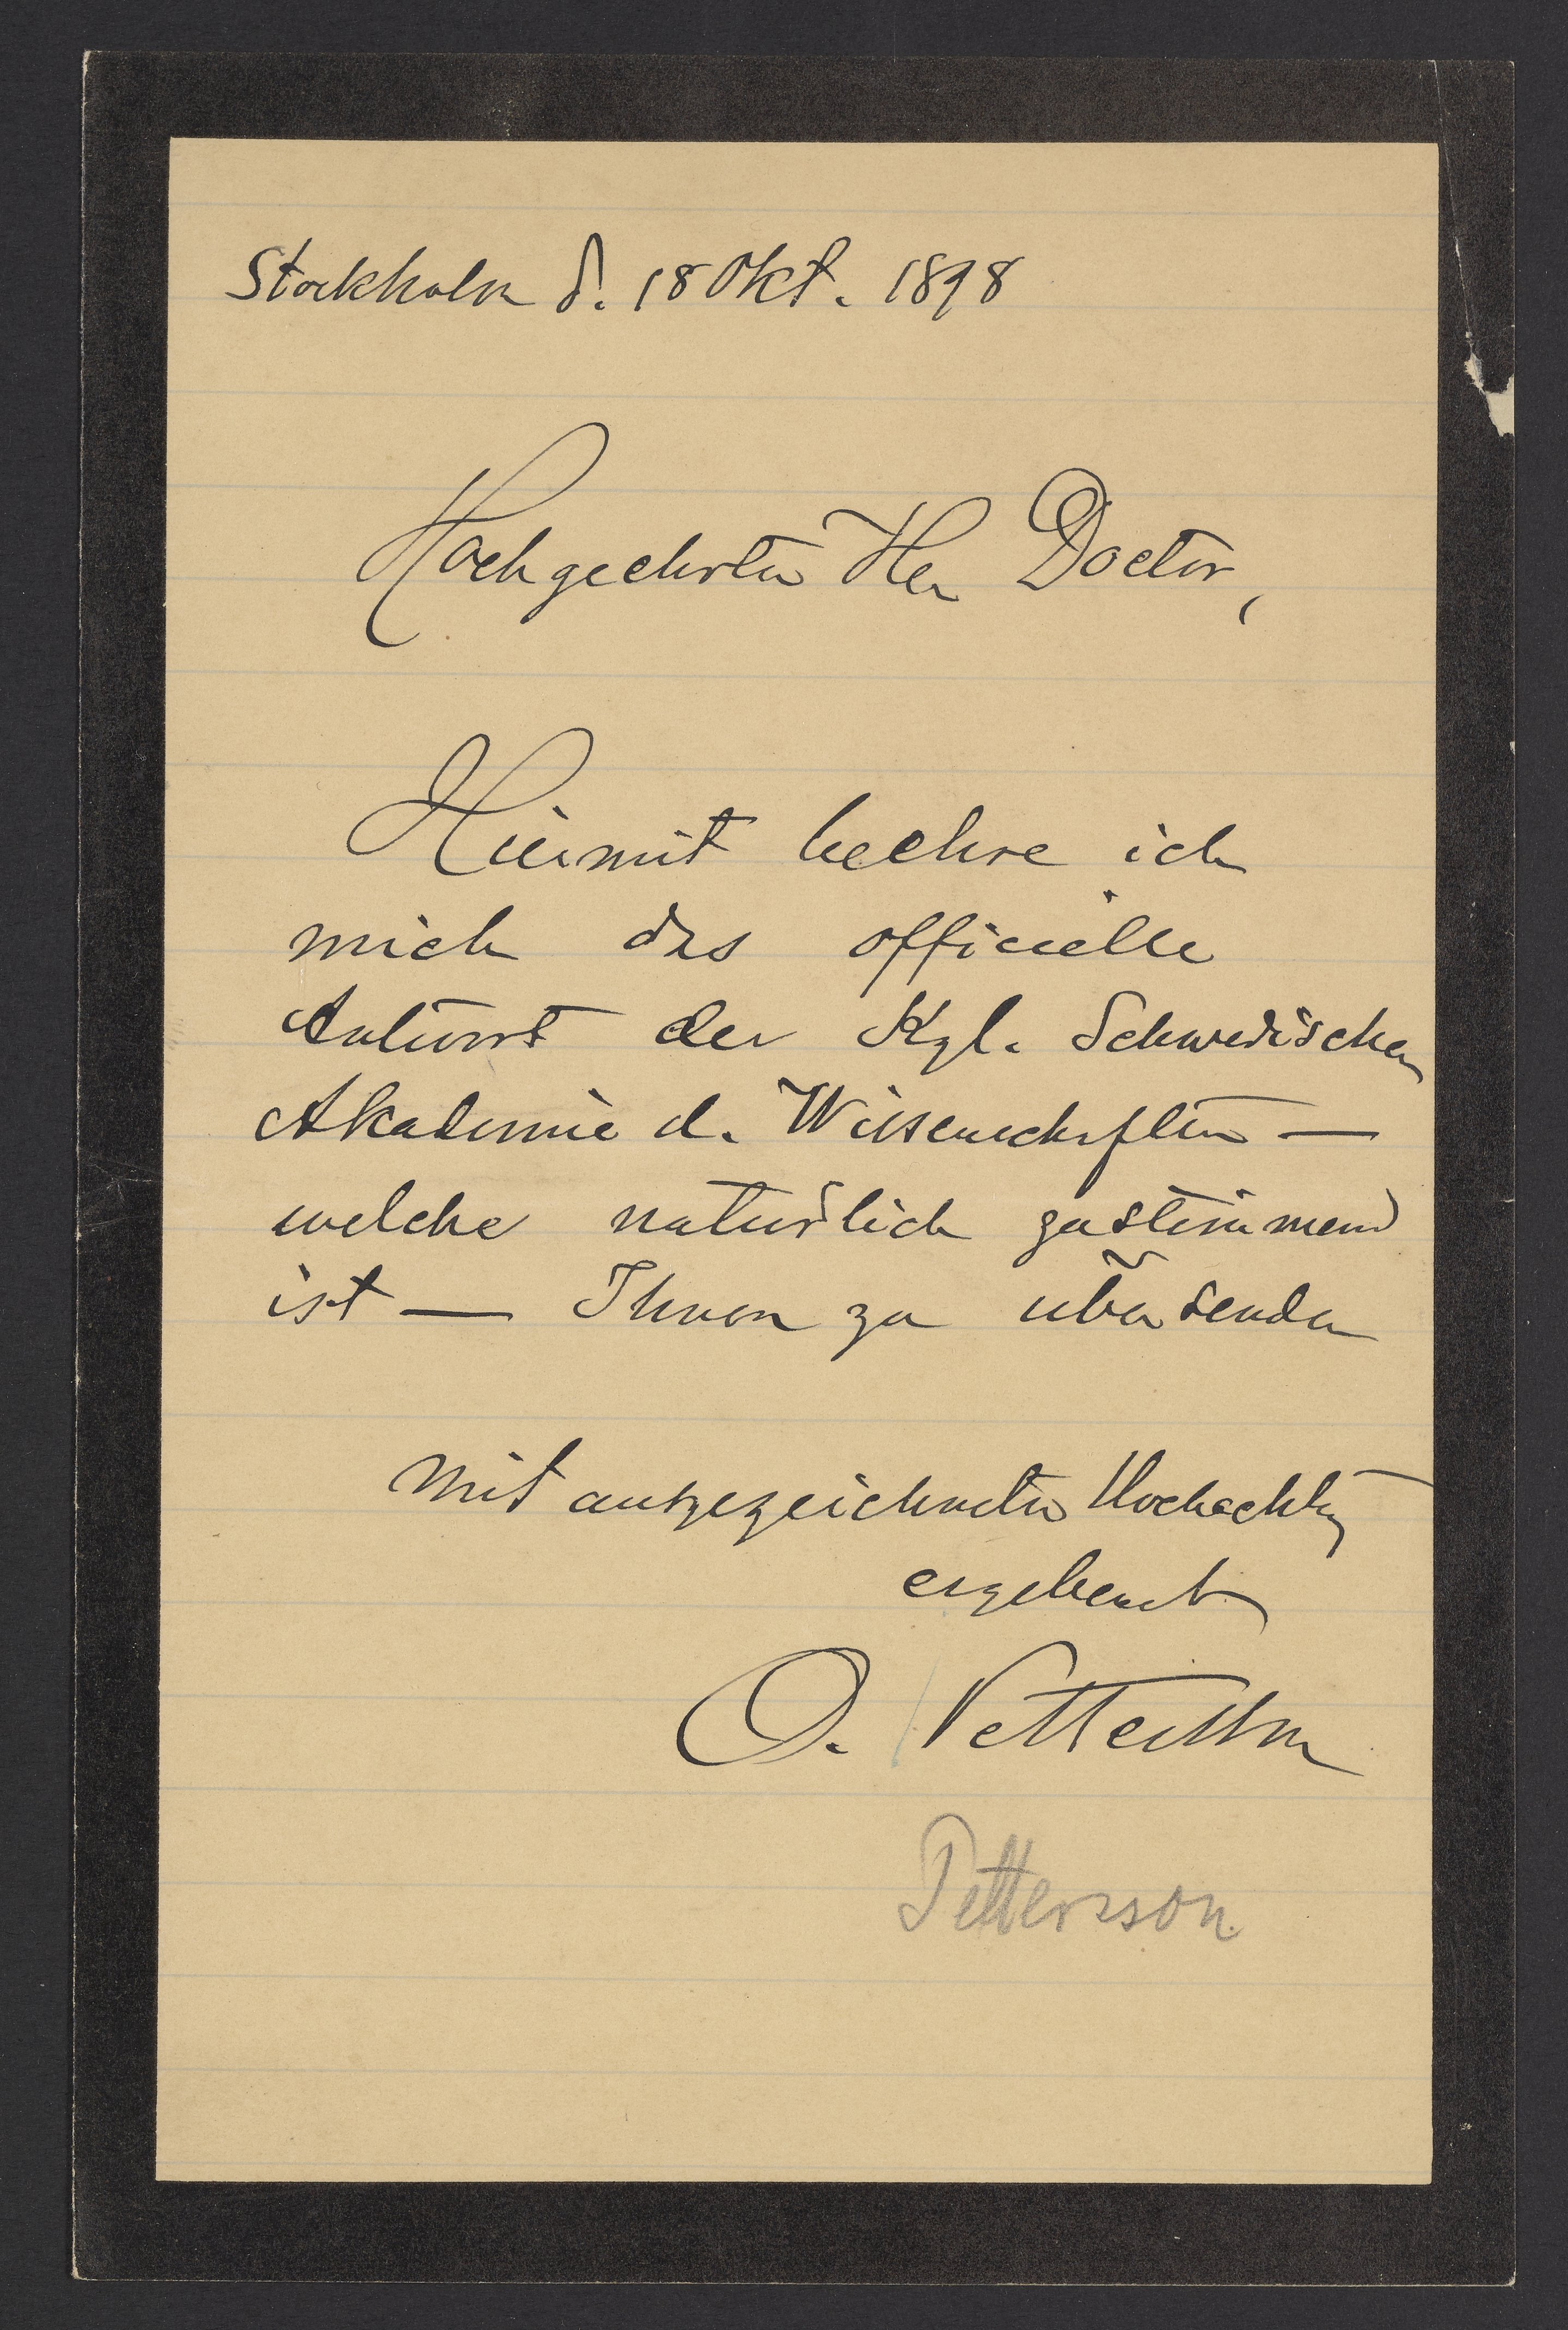 Stockholm d. 18 Okt. 1898
Hochgeehrter Herr Doctor,
Hiermit beehre ich
mich das officielle
Antwort der Kgl. Schwedischen
Akademie d. Wissenschaften —
welche naturlich zustimmend
ist — Ihnen zu übersenden
Mit ausgezeichneter Hochachtung
ergebenst
O. Pettersson
Pettersson